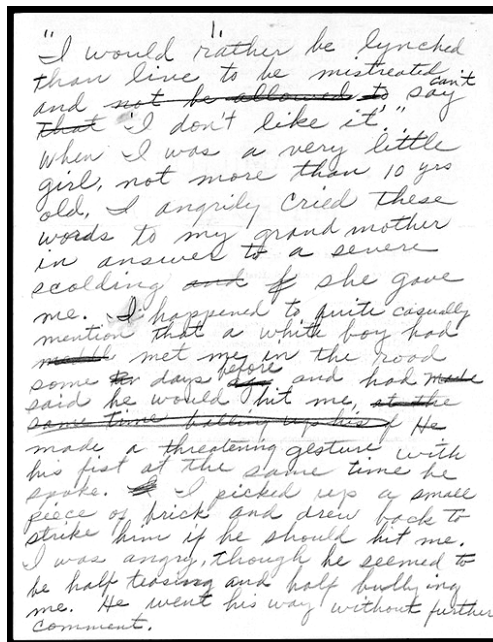 1.
"I would "rather be lynched
than live to be mistreated
and not be allowed to can't say
that 'I don't like it'."
When I was a very little
girl, not more than 10 yrs
old, I angrily cried these
words to my grand mother
in answer to a severe
scolding and she gave
me. I happened to quite casually
mention that a white boy had
met me in the road
some days before and had made
said he would hit me, at the
same time balling up his f He
made a threatening gesture with
his fist at the same time he
spoke. I I picked up a small
piece of brick and drew back to
strike him if he should hit me.
I was angry, though he seemed to
be half teasing and half bullying
me. He went his way without further
comment.